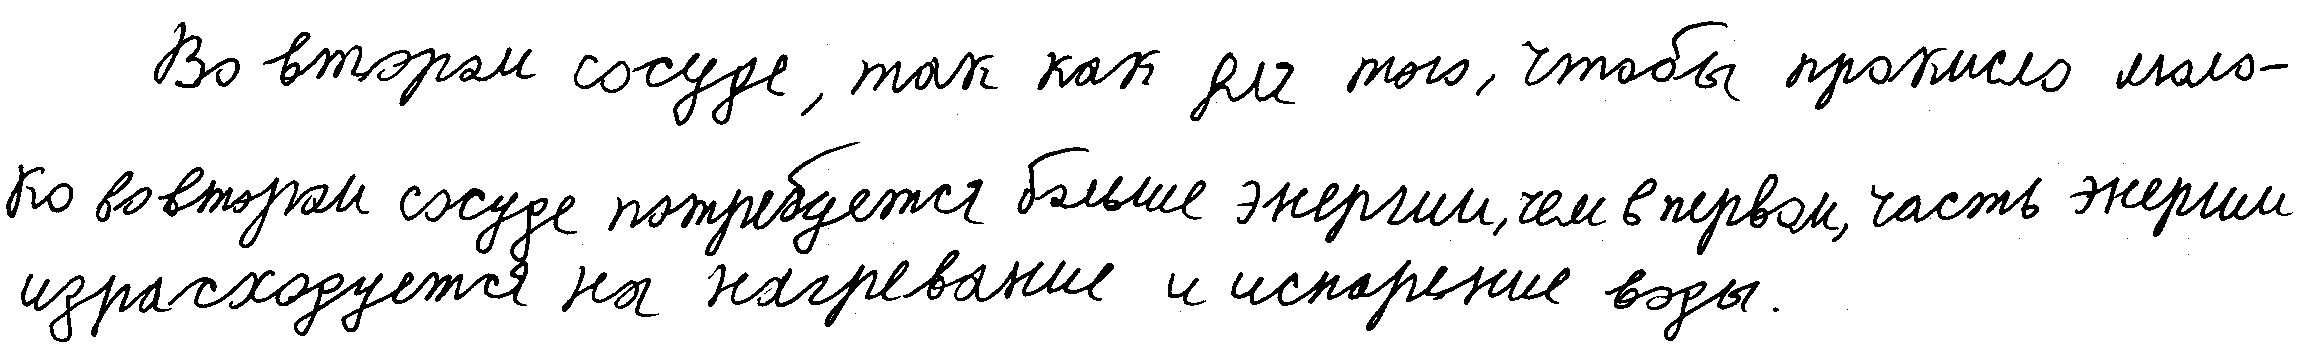 Во втором сосуде, так как для того, чтобы прокисло моло-
ко во втором сосуде потребдется больше энергии, чем в первом, часть энергии
израсходуется на нагревание и испарение воды.